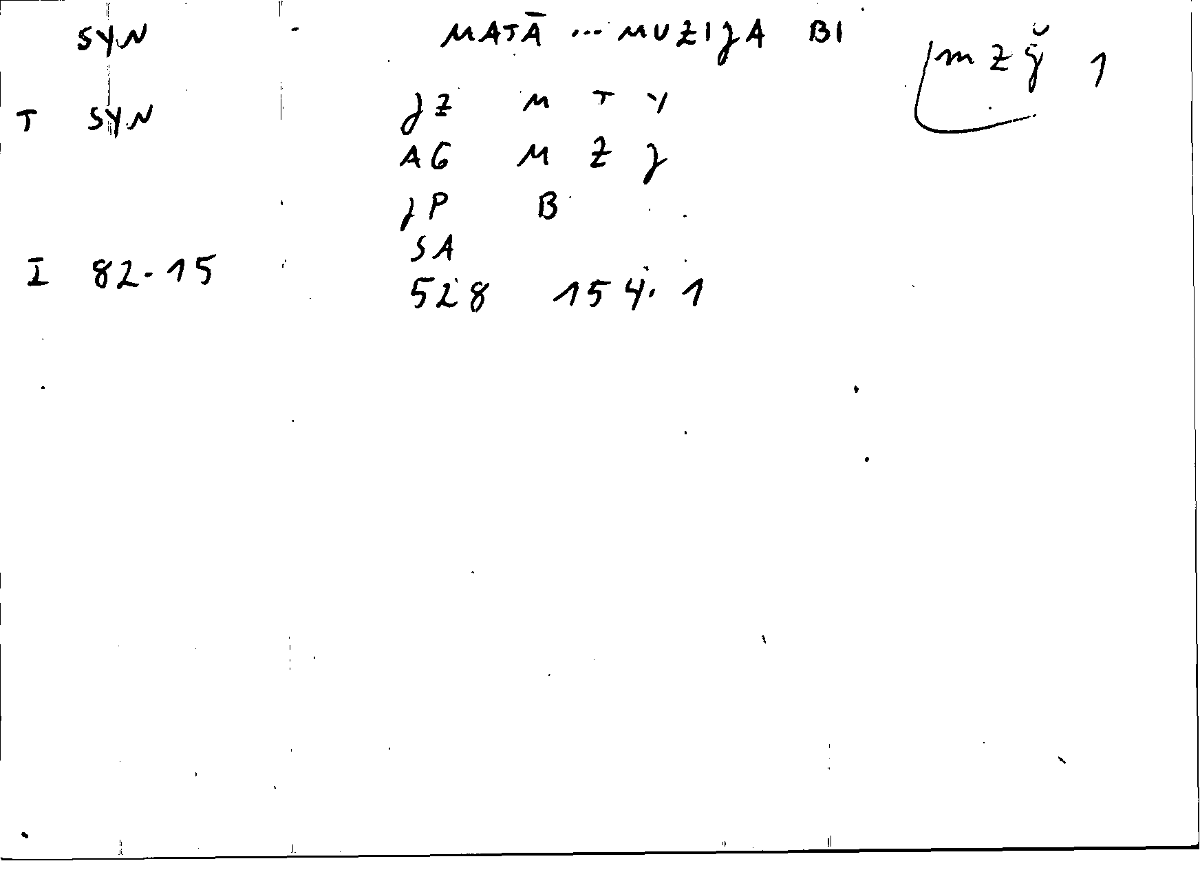 SYN MATĀ ... MUZIJA BI mzǧ 1
T SYN JZ M T Y
AG M Z J
JP B
SA
I 82-15 528 154. 1